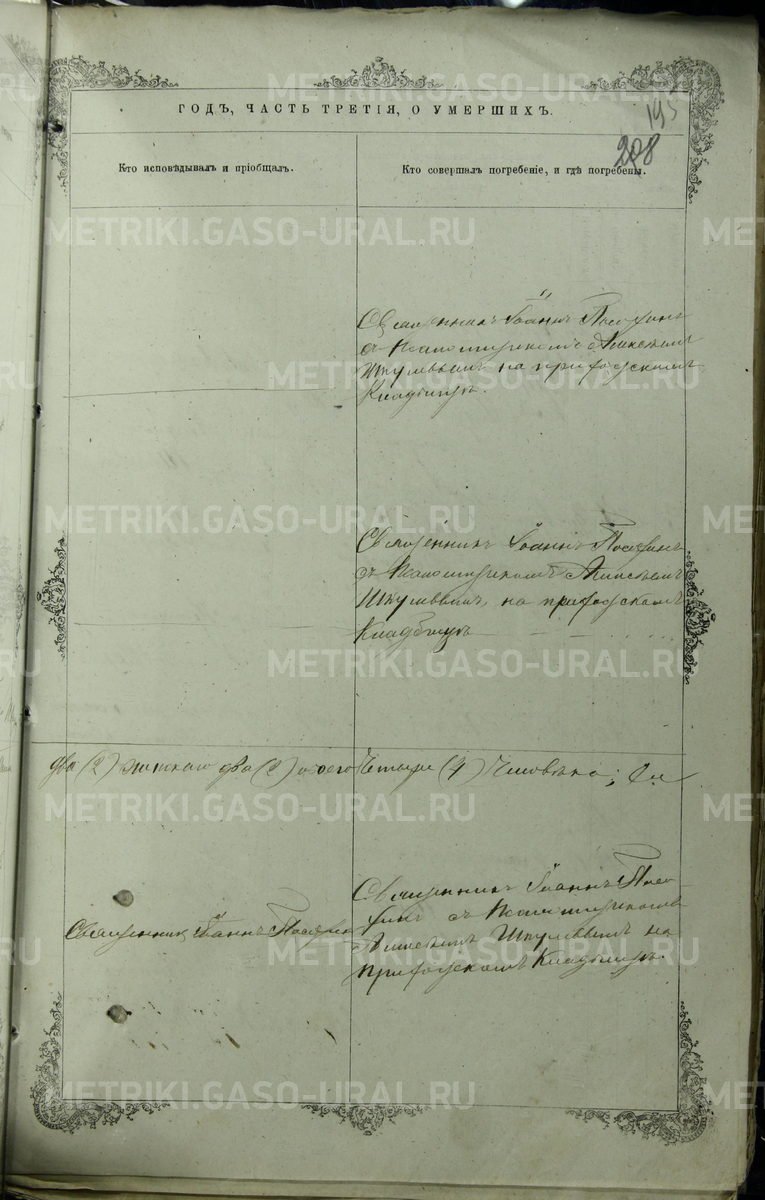 ГОДЪ, ЧАСТЬ ТРЕТІЯ, О УМЕРШИХЪ.
195
208
Кто исповѣдывалъ и пріобщалъ.
Кто совершалъ погребеніе, и гдѣ погребены.
Священникъ Іоаннъ
съ Псаломщикомъ Алексѣемъ
на приходскомъ
Кладбищѣ.
Священникъ Іоаннъ
съ Псаломщикомъ Алексѣемъ
на приходскомъ
Кладбищѣ
два (2) женскаго два (2) обоего Четыре (4) Человѣка;
Священникъ Іоаннъ
Священникъ Іоаннъ
съ Псаломщикомъ
Алексѣемъ на
приходскомъ Кладбищѣ.
METRIKI.GASO-URAL.RU